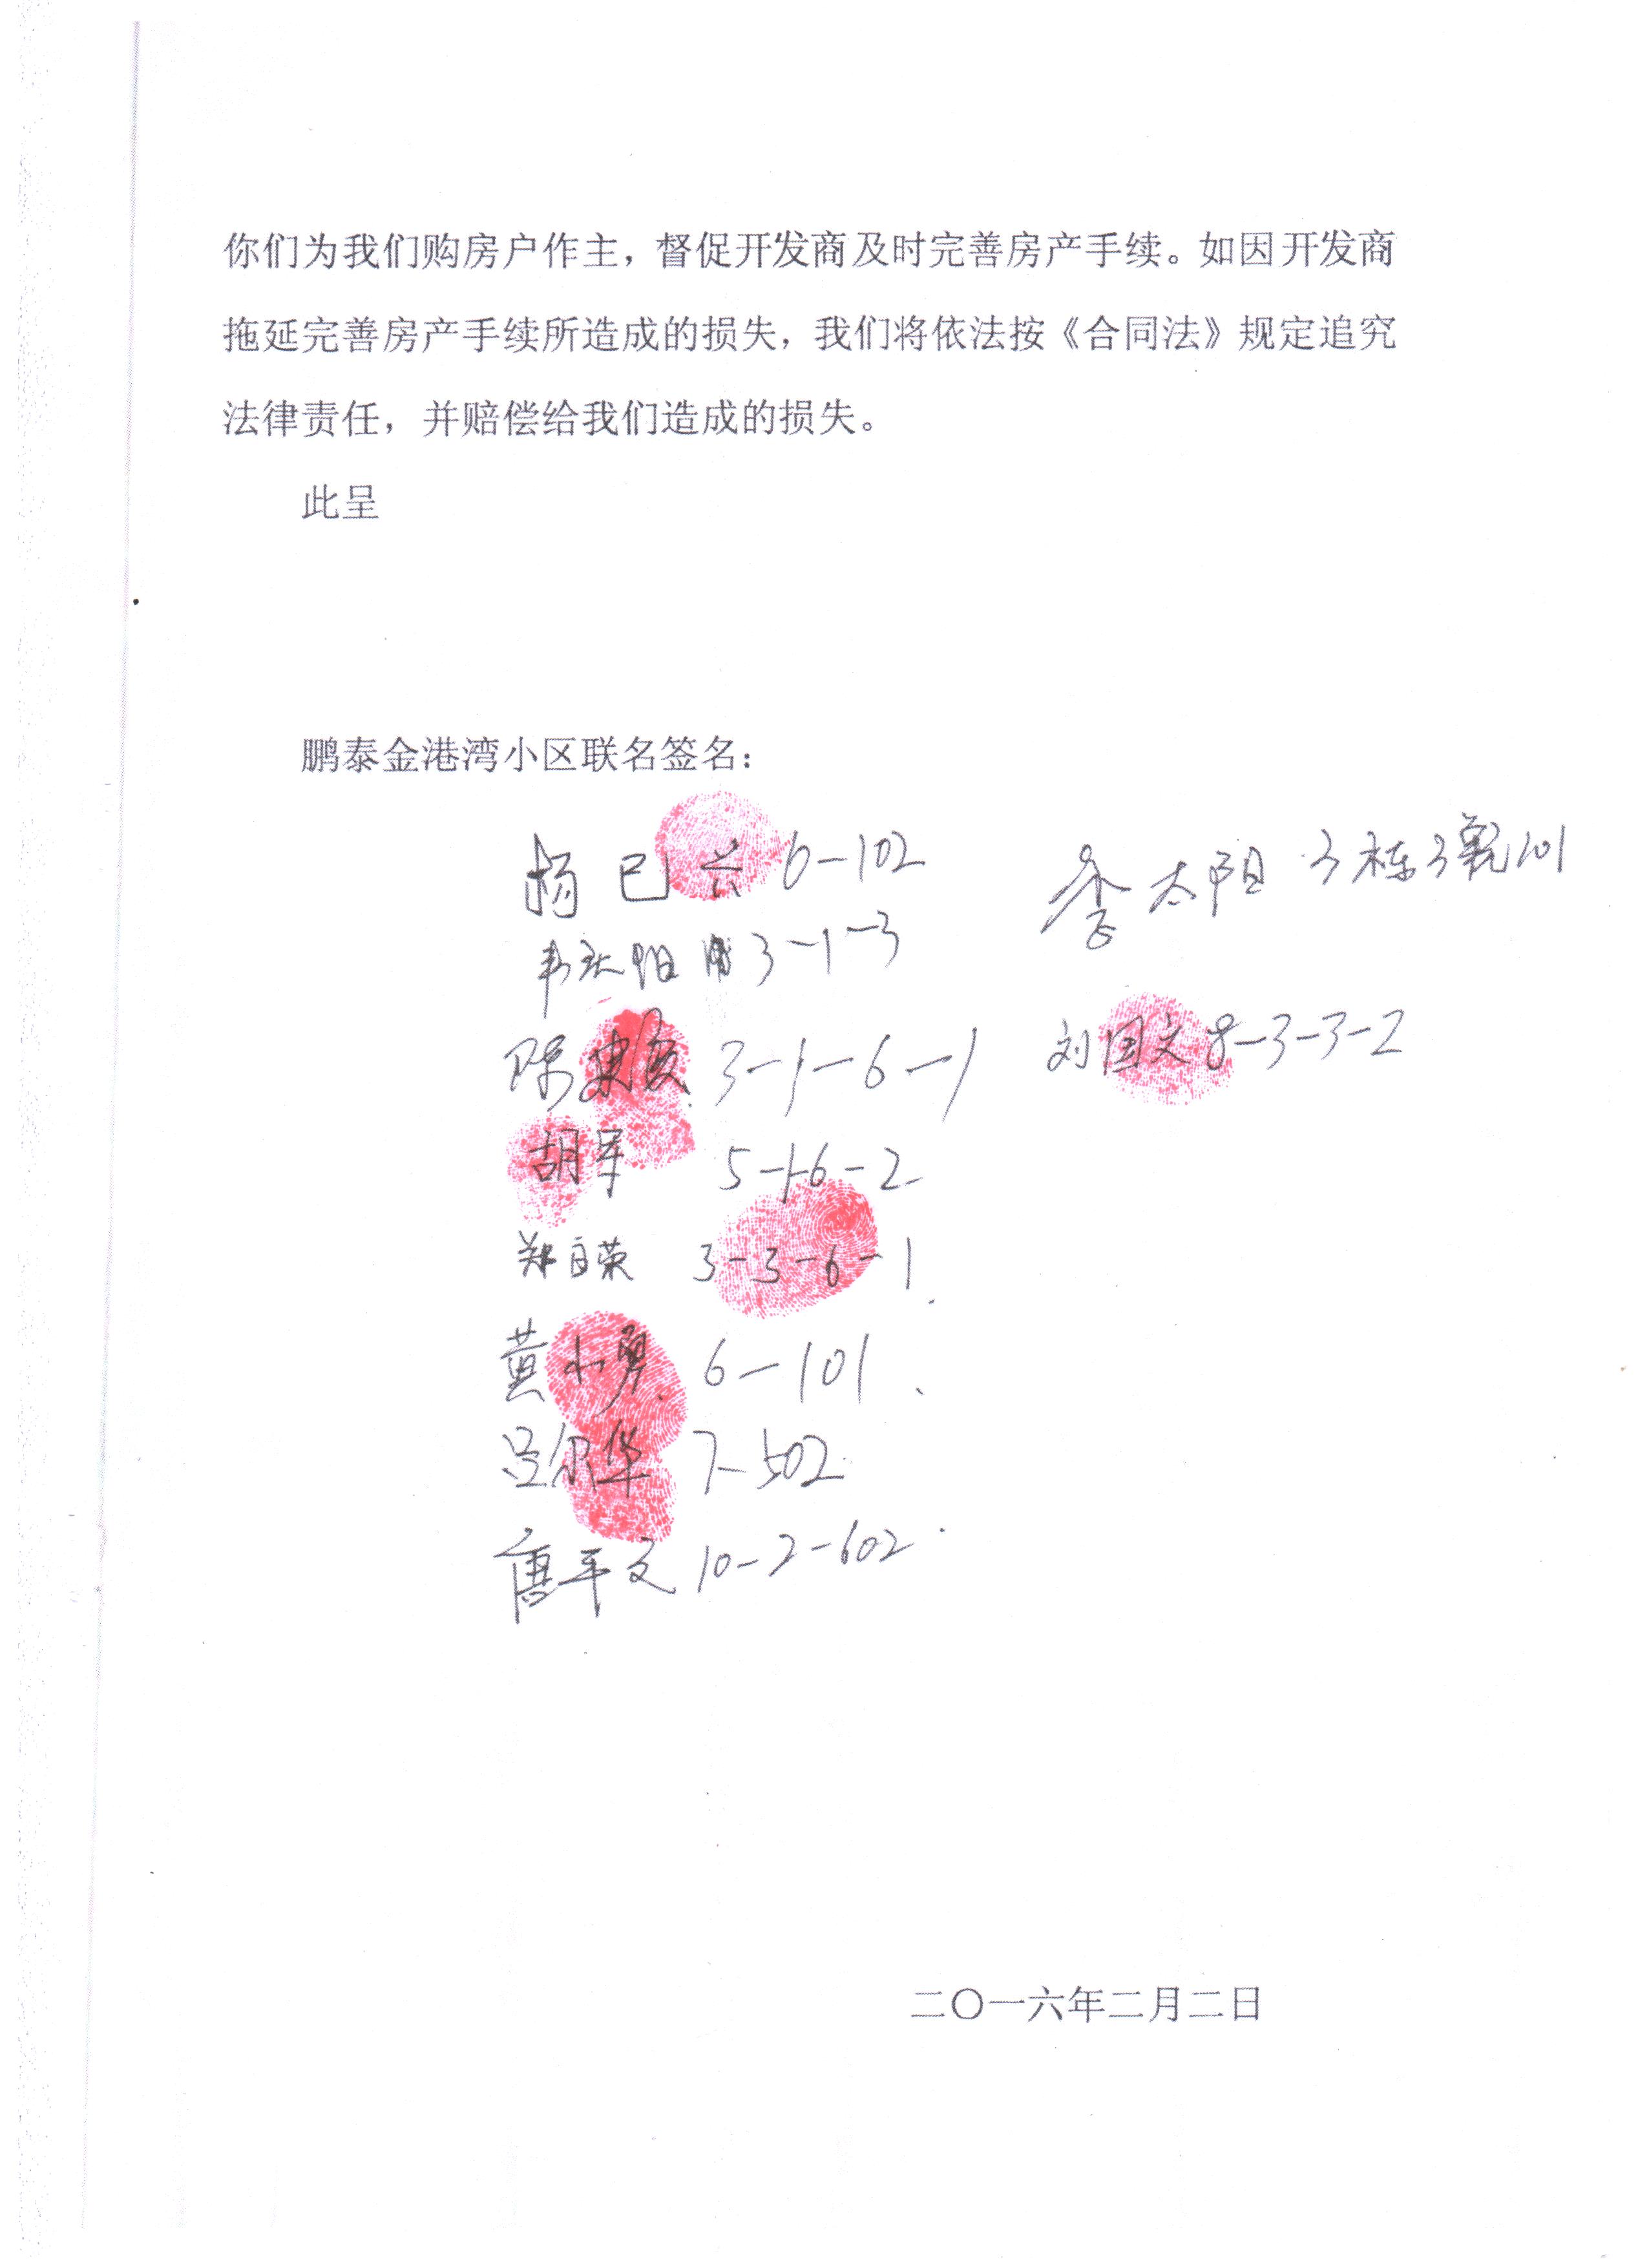 你们为我们购房户作主，督促开发商及时完善房产手续。如因开发商
拖延完善房产手续所造成的损失，我们将依法按《合同法》规定追究
法律责任，并赔偿给我们造成的损失。
此呈
鹏泰金港湾小区联名签名：
杨巳兴 6-102
李太阳 3栋3单元101
3-1-3
陈 3-1-6-1
刘国文 8-3-3-2
胡军 5-1-6-2
郑自荣 3-3-6-1
黄小勇 6-101
吕尔华 7-502
唐平文 10-2-602
二〇一六年二月二日